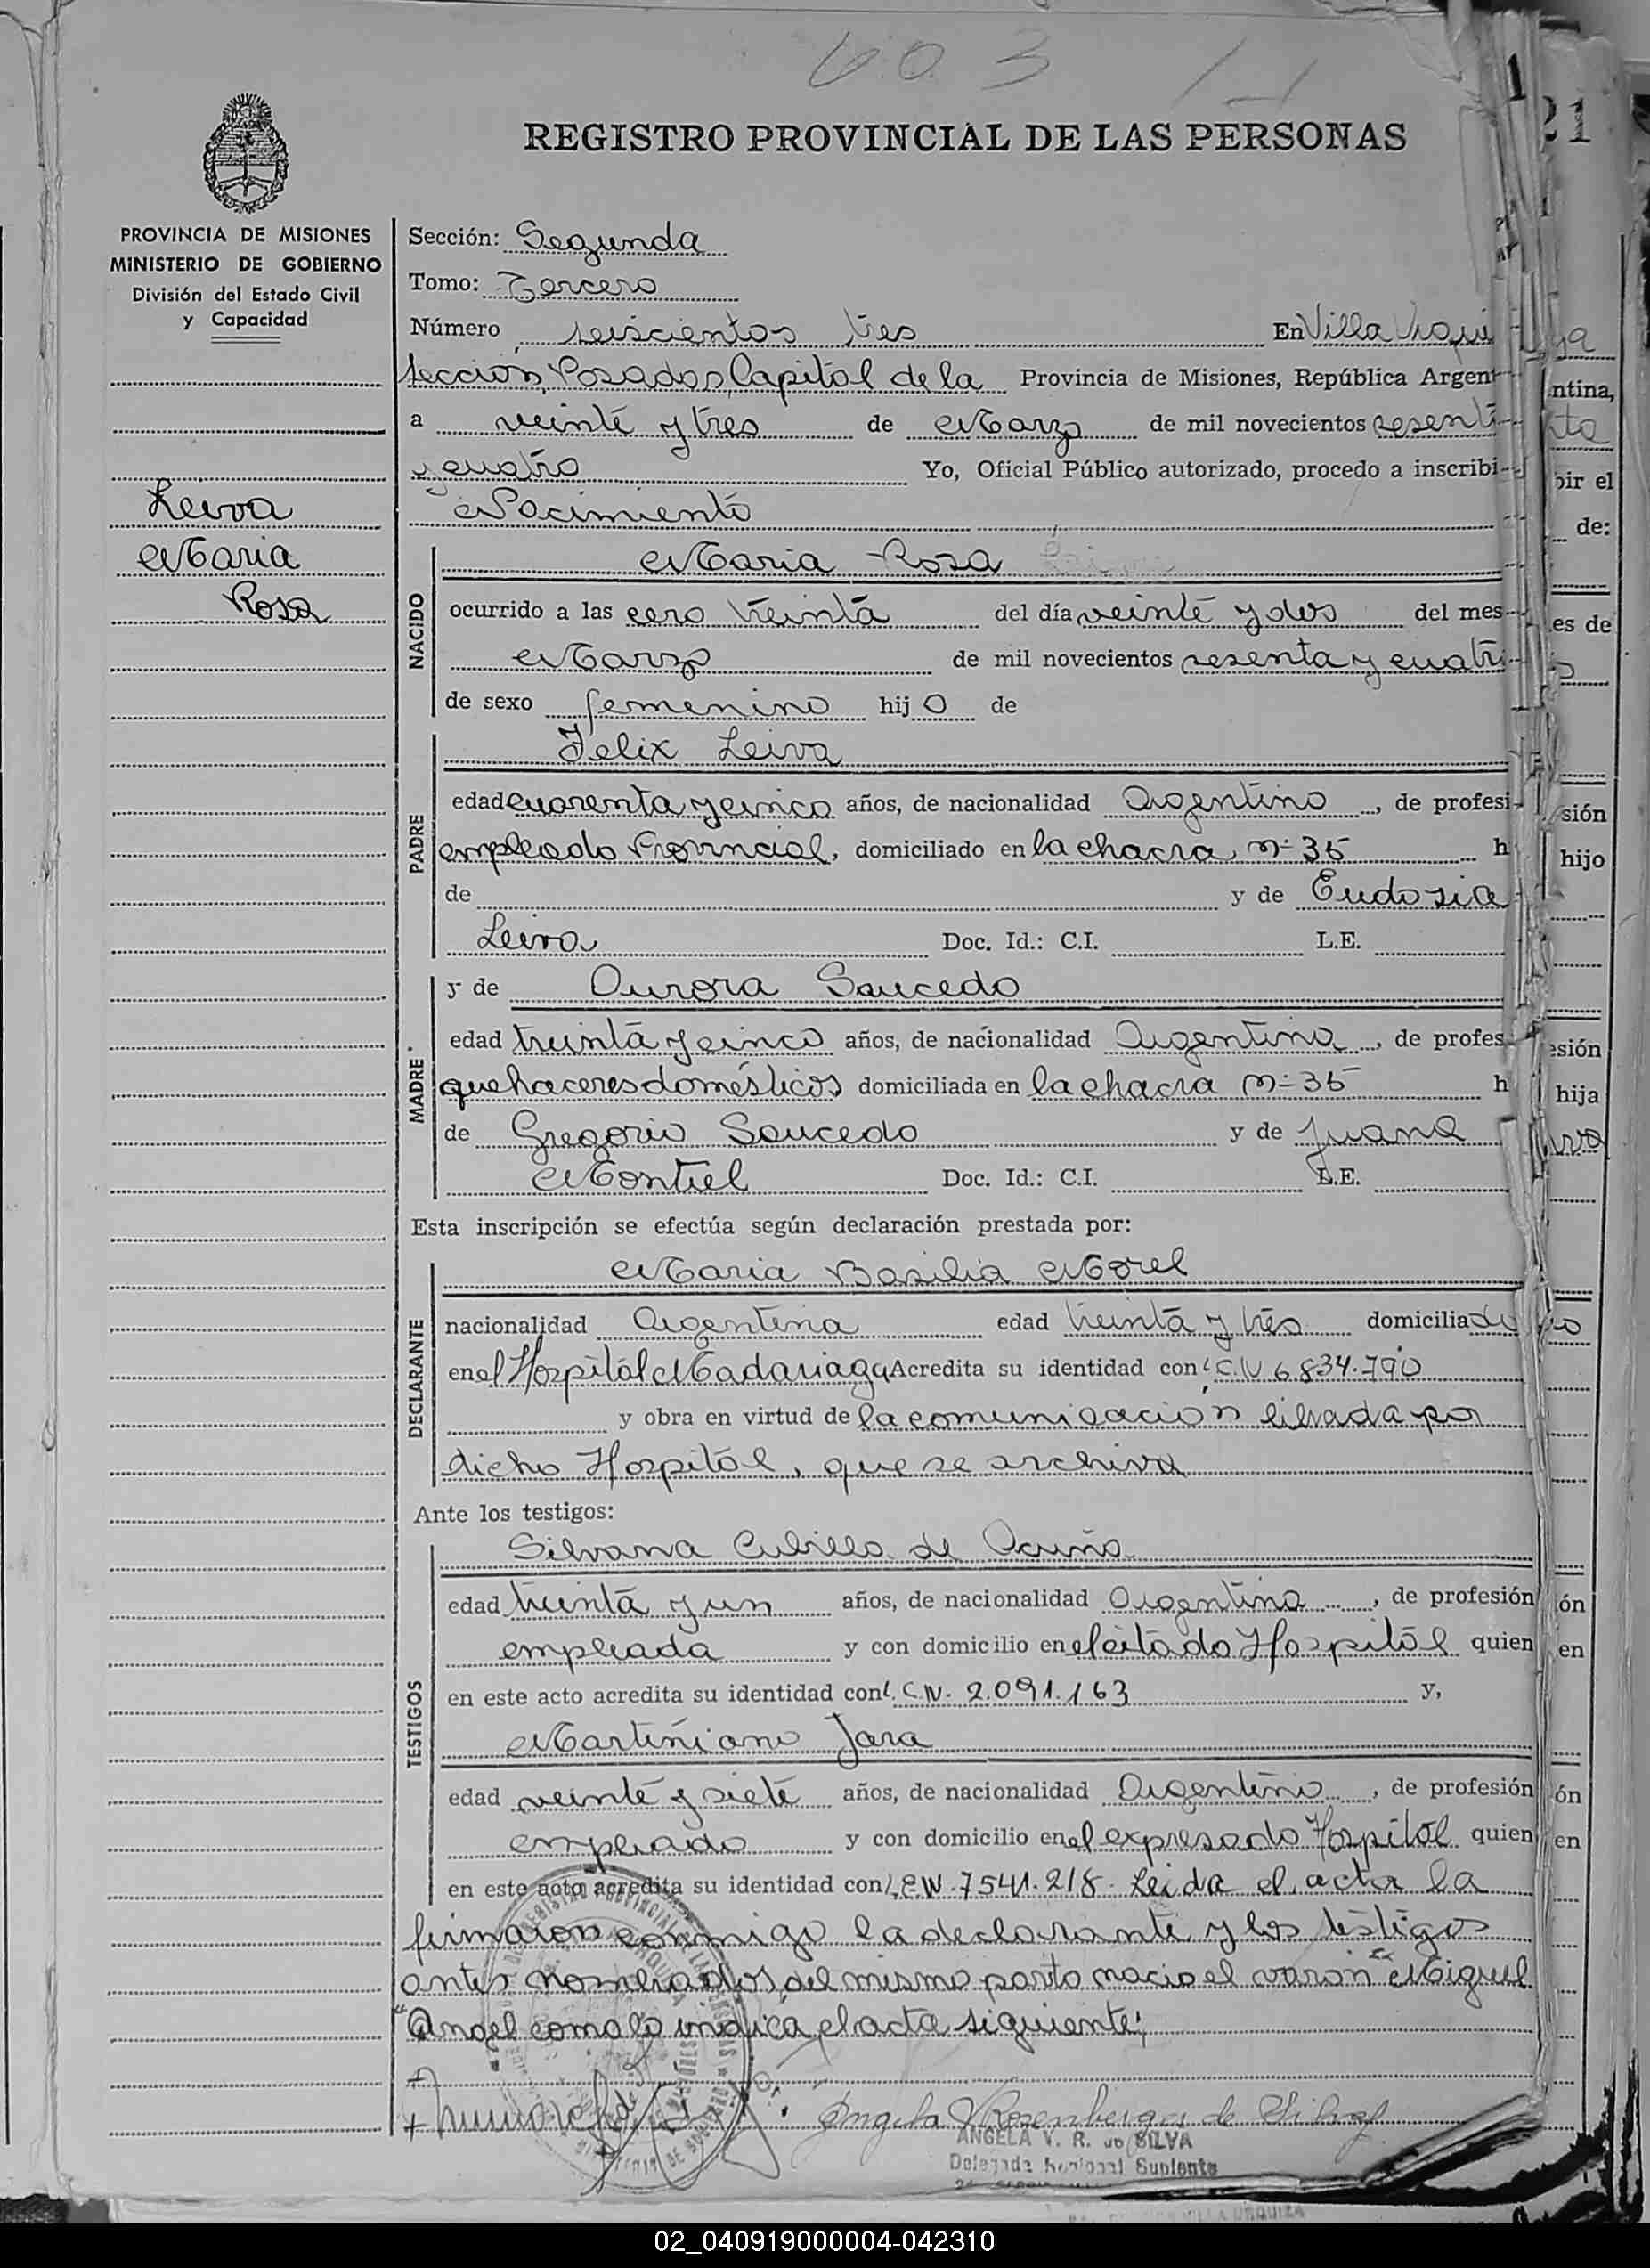 603
REGISTRO PROVINCIAL DE LAS PERSONAS
21
PROVINCIA DE MISIONES
MINISTERIO DE GOBIERNO
División del Estado Civil
y Capacidad
Leiva
Maria
Rosa
Sección: Segunda
Tomo: Tercero
Número seiscientos tres En Villa Urqui
Seccion Posadas, Capital de la Provincia de Misiones, República Argent
a veinte y tres de Marzo de mil novecientos sesenta
y cuatro Yo, Oficial Público autorizado, procedo a inscribi
Nacimiento
NACIDO
Maria Rosa
ocurrido a las cero treinta del día veinte y dos del mes
Marzo de mil novecientos sesenta y cuatro
de sexo femenino hijo de
PADRE
Felix Leiva
edad cuarenta y cinco años, de nacionalidad Argentino, de profesi
empleado Provincial, domiciliado en la chacra nº 35 h
de y de Eudosia
Leiva Doc. Id.: C.I. L.E.
MADRE
y de Aurora Saucedo
edad treinta y cinco años, de nacionalidad Argentina, de profes
quehaceres domésticos domiciliada en la chacra nº 35 h
de Gregorio Saucedo y de Juana
Montiel Doc. Id.: C.I. L.E.
Esta inscripción se efectúa según declaración prestada por:
DECLARANTE
Maria Basilia Morel
nacionalidad Argentina edad treinta y tres domiciliado
en el Hospital Madariaga Acredita su identidad con L.C.Nº 6.834.790
y obra en virtud de la comunicacion librada por
dicho Hospital, que se archiva
Ante los testigos:
TESTIGOS
Silvana Cubilla de Acuña
edad treinta y un años, de nacionalidad Argentina, de profesión
empleada y con domicilio en el citado Hospital quien
en este acto acredita su identidad con L.C.Nº 2.091.163 y,
Martiniano Jara
edad veinte y siete años, de nacionalidad Argentino, de profesión
empleado y con domicilio en el expresado Hospital quien
en este acto acredita su identidad con L.E.Nº 7541.218. Leida el acta la
firmaron conmigo la declarante y los testigos
antes nombrados, del mismo parto nacio el varon "Miguel
"Angel como lo indica el acta siguiente:
Angela V Rosenberger de Silva
ANGELA V. R. de SILVA
Delegada Regional Suplente
ntina,
bir el
de:
es de
sión
hijo
esión
hija
ón
en
ón
en
VILLA URQUIZA
02_040919000004-042310